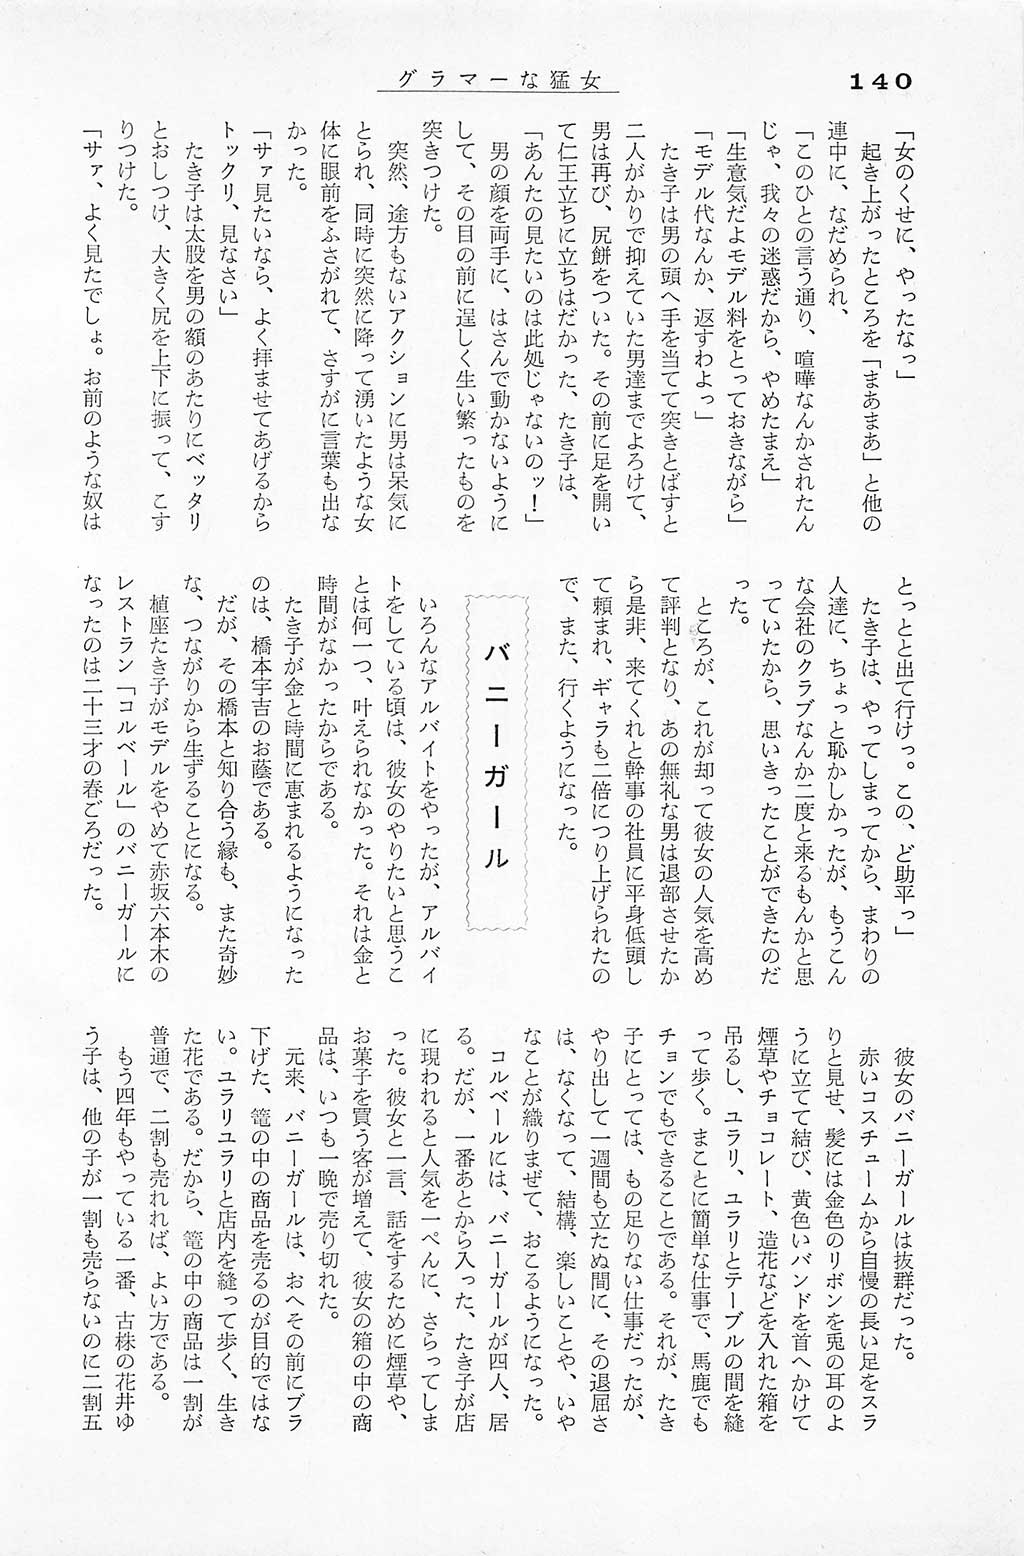 140
グラマーな猛女
「女のくせに、やったなっ」
起き上がったところを「まあまあ」と他の
連中に、なだめられ、
「このひとの言う通り、喧嘩なんかされたん
じゃ、我々の迷惑だから、やめたまえ」
「生意気だよモデル料をとっておきながら」
「モデル代なんか、返すわよっ」
たき子は男の頭へ手を当てて突きとばすと
二人がかりで抑えていた男達までよろけて、
男は再び、尻餅をついた。その前に足を開い
て仁王立ちに立ちはだかった、たき子は、
「あんたの見たいのは此処じゃないのッ！」
男の顔を両手に、はさんで動かないように
して、その目の前に逞しく生い繁ったものを
突きつけた。
突然、途方もないアクションに男は呆気に
とられ、同時に突然に降って湧いたような女
体に眼前をふさがれて、さすがに言葉も出な
かった。
「サァ見たいなら、よく拝ませてあげるから
トックリ、見なさい」
たき子は太股を男の額のあたりにベッタリ
とおしつけ、大きく尻を上下に振って、こす
りつけた。
「サァ、よく見たでしょ。お前のような奴は
とっとと出て行けっ。この、ど助平っ」
たき子は、やってしまってから、まわりの
人達に、ちょっと恥かしかったが、もうこん
な会社のクラブなんか二度と来るもんかと思
っていたから、思いきったことができたのだ
った。
ところが、これが却って彼女の人気を高め
て評判となり、あの無礼な男は退部させたか
ら是非、来てくれと幹事の社員に平身低頭し
て頼まれ、ギャラも二倍につり上げられたの
で、また、行くようになった。
バニーガール
いろんなアルバイトをやったが、アルバイ
トをしている頃は、彼女のやりたいと思うこ
とは何一つ、叶えられなかった。それは金と
時間がなかったからである。
たき子が金と時間に恵まれるようになった
のは、橋本宇吉のお蔭である。
だが、その橋本と知り合う縁も、また奇妙
な、つながりから生ずることになる。
植座たき子がモデルをやめて赤坂六本木の
レストラン「コルベール」のバニーガールに
なったのは二十三才の春ごろだった。
彼女のバニーガールは抜群だった。
赤いコスチュームから自慢の長い足をスラ
リと見せ、髪には金色のリボンを兎の耳のよ
うに立てて結び、黄色いバンドを首へかけて
煙草やチョコレート、造花などを入れた箱を
吊るし、ユラリ、ユラリとテーブルの間を縫
って歩く。まことに簡単な仕事で、馬鹿でも
チョンでもできることである。それが、たき
子にとっては、もの足りない仕事だったが、
やり出して一週間も立たぬ間に、その退屈さ
は、なくなって、結構、楽しいことや、いや
なことが織りまぜて、おこるようになった。
コルベールには、バニーガールが四人、居
る。だが、一番あとから入った、たき子が店
に現われると人気を一ぺんに、さらってしま
った。彼女と一言、話をするために煙草や、
お菓子を買う客が増えて、彼女の箱の中の商
品は、いつも一晩で売り切れた。
元来、バニーガールは、おへその前にブラ
下げた、篭の中の商品を売るのが目的ではな
い。ユラリユラリと店内を縫って歩く、生き
た花である。だから、篭の中の商品は一割が
普通で、二割も売れれば、よい方である。
もう四年もやっている一番、古株の花井ゆ
う子は、他の子が一割も売らないのに二割五